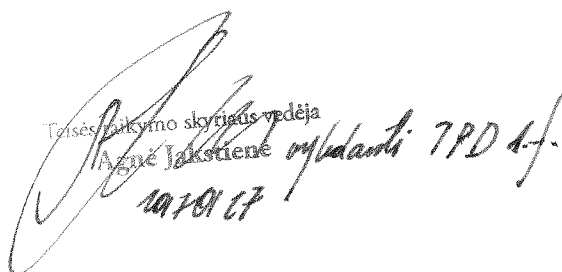 Teisės taikymo skyriaus vedėja
Agnė Jakštienė vykdanti TPD d.f.